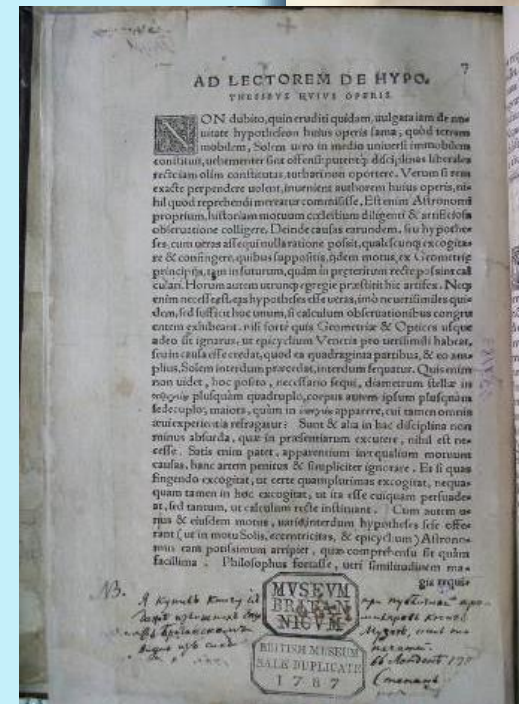 7
AD LECTOREM DE HYPO-
THESIBVS HVIVS OPERIS
NON dubito, quin eruditi quidam, uulgata iam de no-
uitate hypotheseon huius operis fama, quòd terram
mobilem, Solem uero in medio uniuersi immobilem
constituit, uehementer sint offensi, putentq; disciplinas liberales
recte iam olim constitutas, turbari non oportere. Verum si rem
exacte perpendere uolent, inuenient authorem huius operis, ni-
hil quod reprehendi mereatur commisisse. Est enim Astronomi
proprium, historiam motuum cœlestium diligenti & artificiosa
obseruatione colligere. Deinde causas earundem, seu hypothe-
ses, cum ueras assequi nulla ratione possit, qualescunq; excogita-
re & confingere, quibus suppositis, ijdem motus, ex Geometriæ
principijs, tam in futurum, quàm in præteritum recte possint cal-
culari. Horum autem utrunq; egregie præstitit hic artifex. Neq;
enim necesse est, eas hypotheses esse ueras, imò ne uerisimiles qui-
dem, sed sufficit hoc unum, si calculum obseruationibus congru-
entem exhibeant. nisi fortè quis Geometriæ & Optices usque
adeo sit ignarus, ut epicyclium Veneris pro uerisimili habeat,
seu in causa esse credat, quod ea quadraginta partibus, & eo am-
plius, Solem interdum præcedat, interdum sequatur. Quis enim
non uidet, hoc posito, necessario sequi, diametrum stellæ in
plusquàm quadruplo, corpus autem ipsum plusquàm
sedecuplo, maiora, quàm in apparere, cui tamen omnis
æui experientia refragatur? Sunt & alia in hac disciplina non
minus absurda, quæ in præsentiarum excutere, nihil est ne-
cesse. Satis enim patet, apparentium inæqualium motuum
causas, hanc artem penitus & simpliciter ignorare. Et si quas
fingendo excogitat, ut certe quamplurimas excogitat, nequa-
quam tamen in hoc excogitat, ut ita esse cuiquam persuade-
at, sed tantum, ut calculum recte instituant. Cum autem u-
nius & eiusdem motus, uariæ interdum hypotheses sese offe-
rant (ut in motu Solis, eccentricitas, & epicyclium) Astrono-
mus eam potissimum arripiet, quæ comprehensu sit quàm
facillima. Philosophus fortasse, ueri similitudinem ma-
gis requi-
NB.
Я купилъ книгу при публичной
MVSEVM
BRITAN
NICVM
BRITISH MUSEUM
SALE DUPLICATE
1787